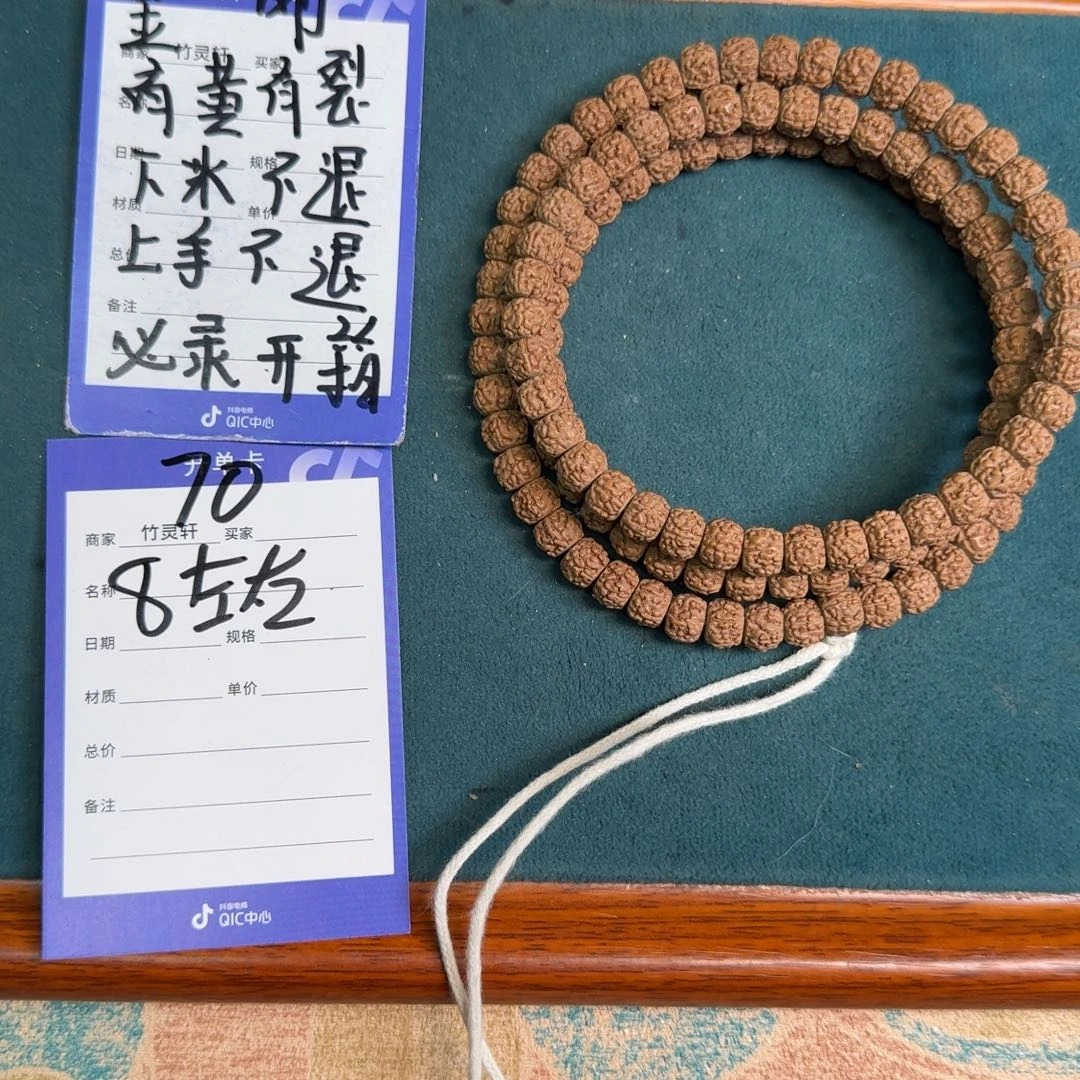 商家 竹灵轩 买家
有黄有裂
名称
日期 规格
下水不退
材质 单价
上手不退
总价
备注
必录开箱
抖音电商
QIC中心
开单卡
70
商家 竹灵轩 买家
名称
8左右
日期 规格
材质 单价
总价
备注
抖音电商
QIC中心